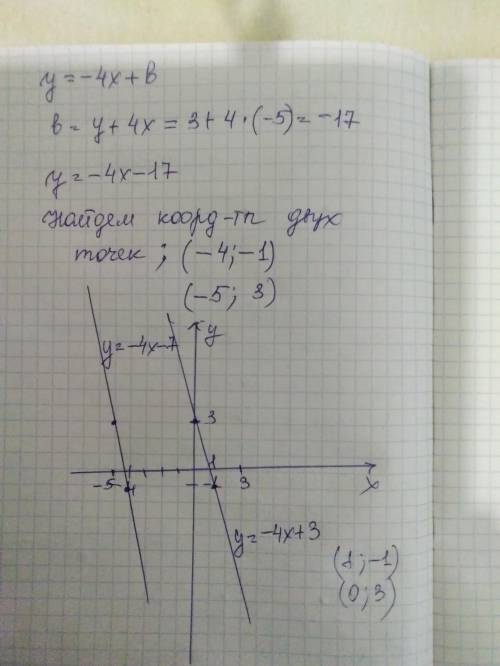 y = -4x + b
b = y + 4x = 3 + 4 · (-5) = -17
y = -4x - 17
Найдем коорд-ты двух
точек ; (-4; -1)
(-5; 3)
y
y = -4x - 7
3
1
-5 -4 -1 3 x
y = -4x + 3
(1; -1)
(0; 3)